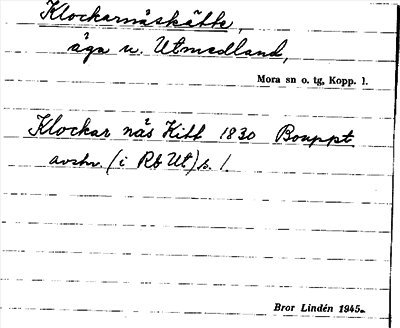 Klockarnäskätte,
äga u. Utmedland,
Mora sn o. tg, Kopp. l.
Klockar näs Kitt 1830 Bouppt
avskr. (i Rb Ut) s. 1
Bror Lindén 1945.